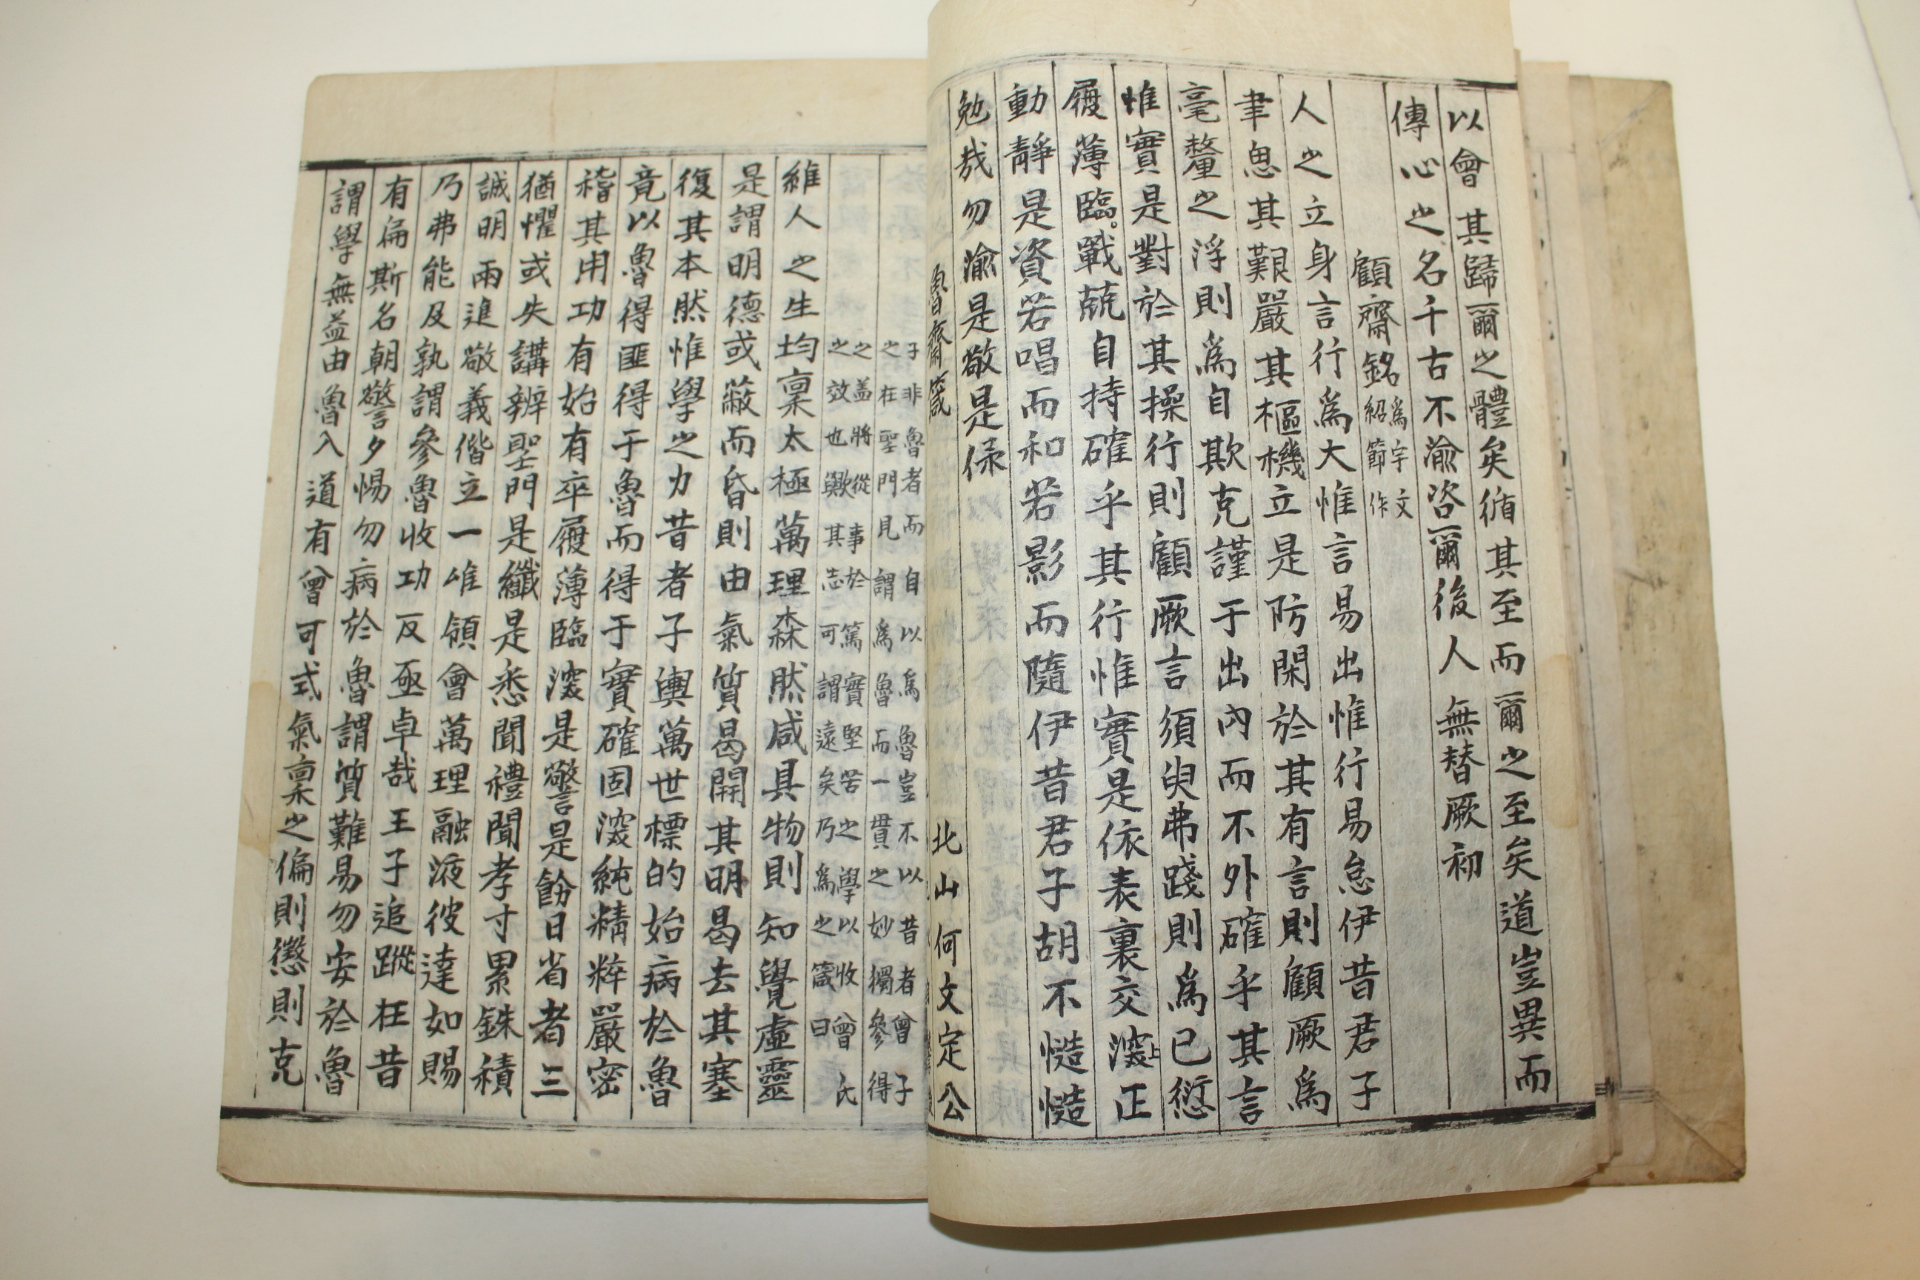 以會其歸爾之體矣循其至而爾之至矣道豈異而
傳心之名千古不渝咨爾後人無替厥初
顧齋銘
爲字文
紹節作
人之立身言行爲大惟言易出惟行易怠伊昔君子
聿思其艱嚴其樞機立是防閑於其有言則顧厥爲
毫釐之浮則爲自欺克謹于出內而不外確乎其言
惟實是對於其操行則顧厥言須臾弗踐則爲已愆
履薄臨戰兢自持確乎其行惟實是依表裏交正
動靜是資若唱而和若影而隨伊昔君子胡不慥慥
勉哉勿渝是敬是保
魯齋箴
北山何文定公
子非魯者而自以爲魯豈不以昔者曾子
之在聖門見謂爲魯而一貫之妙獨參得
之盖將從事於篤實堅苦之學以收曾氏
之效也歟其志可謂遠矣乃爲之箴曰
維人之生均稟太極萬理森然咸具物則知覺虛靈
是謂明德或蔽而昏則由氣質曷開其明曷去其塞
復其本然惟學之力昔者子輿萬世標的始病於魯
竟以魯得匪得于魯而得于實確固深純精粹嚴密
稽其用功有始有卒履薄臨深是警是飭日省者三
猶懼或失講辨聖門是纖是悉聞禮聞孝寸累銖積
誠明兩進敬義偕立一唯領會萬理融液彼達如賜
乃弗能及孰謂參魯收功反亟卓哉王子追蹤在昔
有扁斯名朝警夕惕勿病於魯謂質難易勿安於魯
謂學無益由魯入道有曾可式氣稟之偏則懲則克